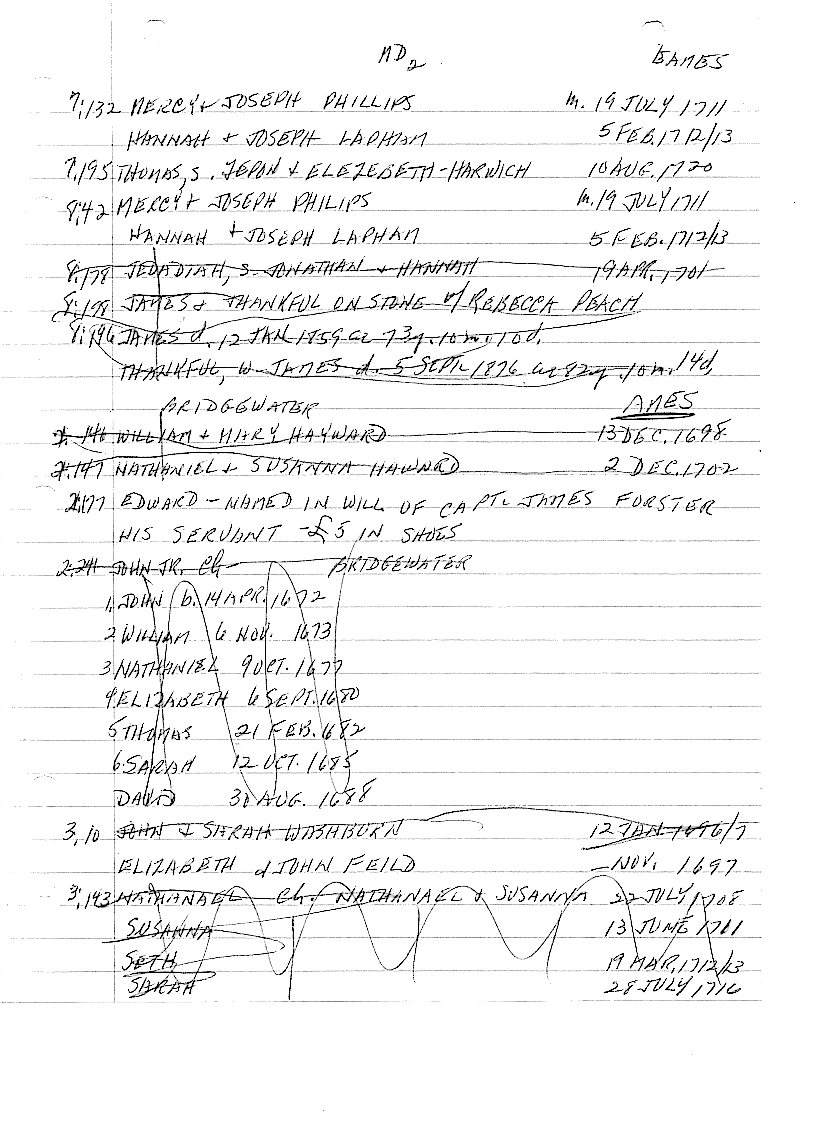 MD2 EAMES
7;132 MERCY & JOSEPH PHILLIPS m. 19 JULY 1711
HANNAH & JOSEPH LAPHAM 5 FEB. 1712/13
7,195 THOMAS, s. JEPON & ELEZEBETH-HARWICH 10 AUG. 1720
8;42 MERCY & JOSEPH PHILIPS m. 19 JULY 1711
HANNAH & JOSEPH LAPHAM 5 FEB. 1712/13
8;178 JEDADIAH, s. JONATHAN & HANNAH 19 APR. 1701
8;198 JAMES & THANKFUL ON STONE w/ REBECCA PEACH
8;196 JAMES d. 12 JAN 1859 ae 73y. 10m 10d.
THANKFUL, w. JAMES d. 5 SEPT. 1876 ae 82y. 10m. 14d,
BRIDGEWATER AMES
2;146 WILLIAM & MARY HAYWARD 13 DEC. 1698
2;147 NATHANIEL & SUSANNA HAWARD 2 DEC. 1702
2;177 EDWARD - NAMED IN WILL OF CAPT. JAMES FORSTER
HIS SERVANT - £5 IN SHOES
2;241 JOHN JR. Ch BRIDGEWATER
1, JOHN b. 14 APR. 1672
2 WILLIAM 6 NOV. 1673
3 NATHANIEL 9 OCT. 1677
4 ELIZABETH 6 SEPT. 1680
5 THOMAS 21 FEB. 1682
6 SARAH 12 OCT. 1685
DAVID 30 AUG. 1688
3,10 JOHN & SARAH WASHBURN 12 JAN 1696/7
ELIZABETH & JOHN FEILD — NOV. 1697
3;143 NATHANAEL Ch. NATHANAEL & SUSANNA 22 JULY 1708
SUSANNA 13 JUNE 1711
SETH 19 MAR. 1712/13
SARAH 28 JULY 1716